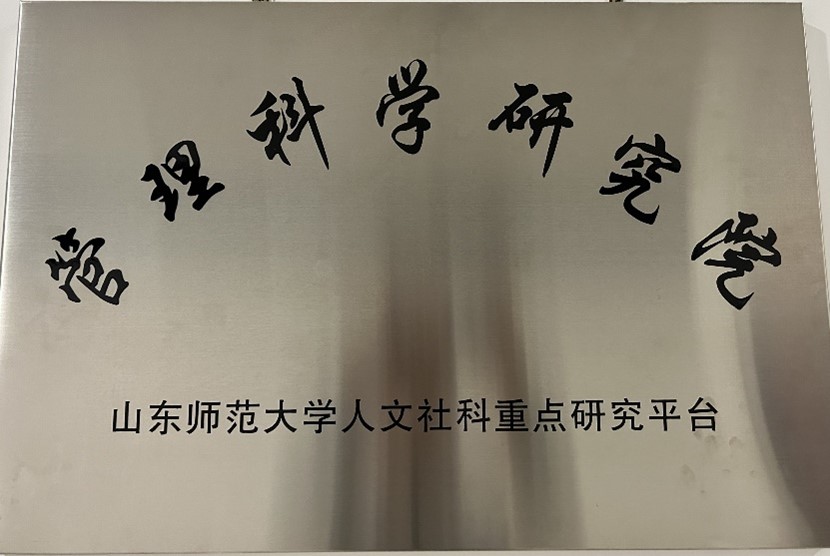 管理科学研究院
山东师范大学人文社科重点研究平台